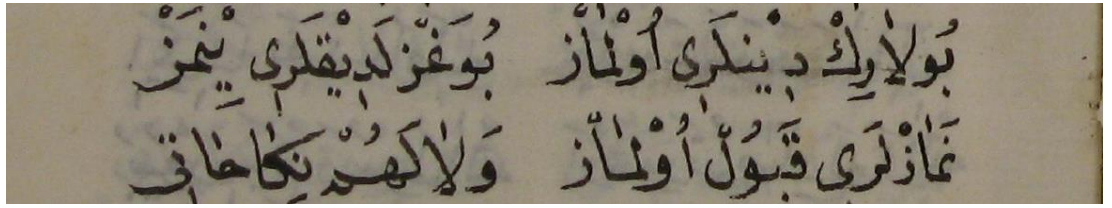 بُولاَرِڭْ دِینلَرِی اُوْلْمَازْ بُوغَزْلَدِیقلَرِی یِنْمَزْ
نَمَازْلَرِی قَبُولْ اُوْلْمَازْ وَلاَ لَهُمْ نِكَاحَاتِی